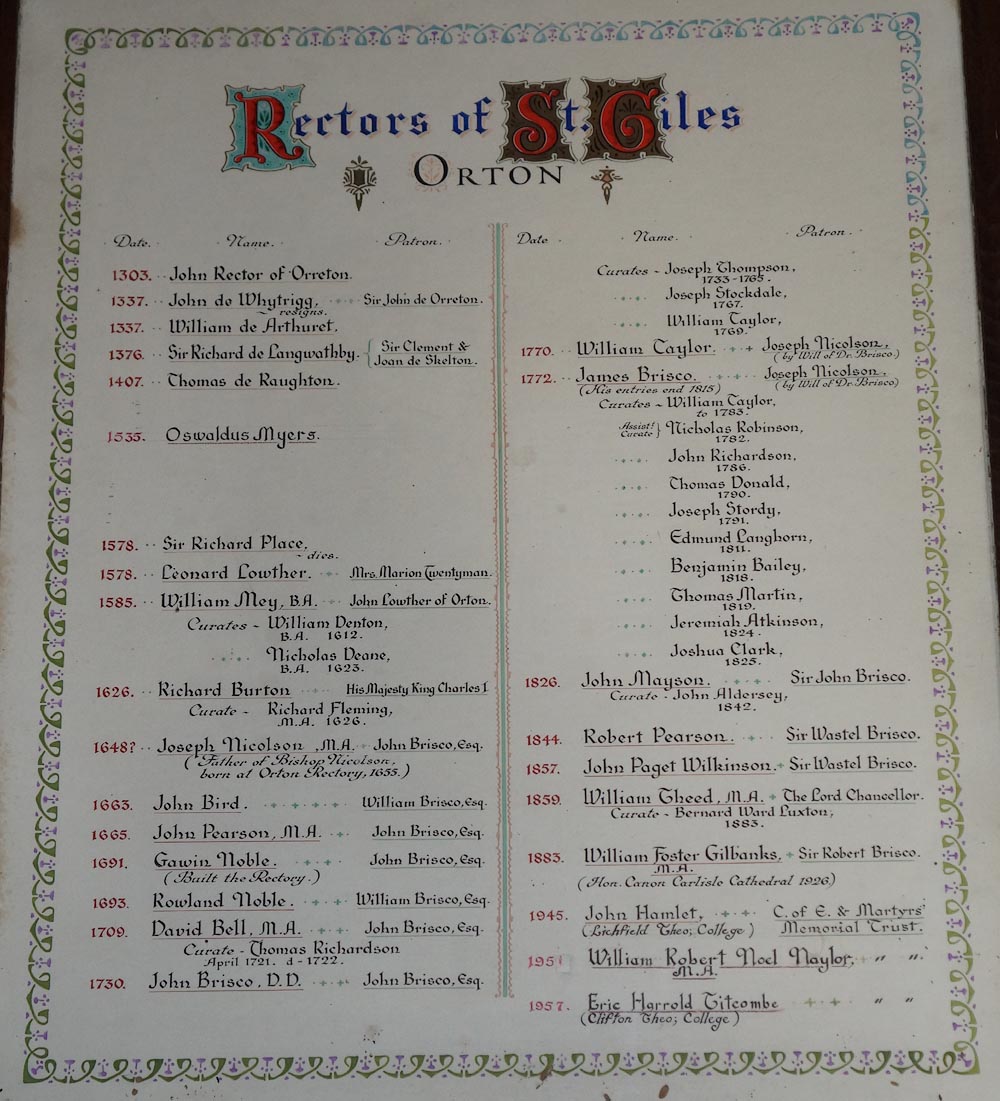 Rectors of St. Giles
ORTON
Date. Name. Patron.
1303. John Rector of Orreton.
1337. John de Whytrigg, Sir John de Orreton.
~ resigns.
1337. William de Arthuret,
1376. Sir Richard de Langwathby. { Sir Clement &
Joan de Skelton.
1407. Thomas de Raughton.
1535. Oswaldus Myers.
1578. Sir Richard Place,
~ dies.
1578. Leonard Lowther. Mrs. Marion Twentyman.
1585. William Mey, B.A. John Lowther of Orton.
Curates ~ William Denton,
B.A. 1612.
Nicholas Deane,
B.A. 1623.
1626. Richard Burton His Majesty King Charles I
Curate ~ Richard Fleming,
M.A. 1626.
1648? Joseph Nicolson, M.A. John Brisco, Esq.
(Father of Bishop Nicolson,
born at Orton Rectory, 1655.)
1663. John Bird. William Brisco, Esq.
1665. John Pearson, M.A. John Brisco, Esq.
1691. Gawin Noble. John Brisco, Esq.
(Built the Rectory.)
1693. Rowland Noble. William Brisco, Esq.
1709. David Bell, M.A. John Brisco, Esq.
Curate ~ Thomas Richardson
April 1721. d - 1722.
1730. John Brisco, D.D. John Brisco, Esq.
Date Name. Patron.
Curates ~ Joseph Thompson,
1733-1765.
Joseph Stockdale,
1767.
William Taylor,
1769.
1770. William Taylor. Joseph Nicolson,
(by Will of Dr. Brisco.)
1772. James Brisco. Joseph Nicolson,
(His entries end 1815) (by Will of Dr. Brisco)
Curates ~ William Taylor,
to 1783.
Assist! Curate } Nicholas Robinson,
1782.
John Richardson,
1786.
Thomas Donald,
1790.
Joseph Stordy,
1791.
Edmund Langhorn,
1811.
Benjamin Bailey,
1818.
Thomas Martin,
1819.
Jeremiah Atkinson,
1824.
Joshua Clark,
1825.
1826. John Mayson. Sir John Brisco.
Curate ~ John Aldersey,
1842.
1844. Robert Pearson. Sir Wastel Brisco.
1857. John Paget Wilkinson. Sir Wastel Brisco.
1859. William Theed, M.A. The Lord Chancellor.
Curate ~ Bernard Ward Luxton,
1883.
1883. William Foster Gilbanks, Sir Robert Brisco.
M.A.
(Hon. Canon Carlisle Cathedral 1926)
1945. John Hamlet, C. of E. & Martyrs'
(Lichfield Theo; College) Memorial Trust.
1951 William Robert Noel Naylor, " "
M.A.
1957. Eric Harrold Titcombe " "
(Clifton Theo; College)